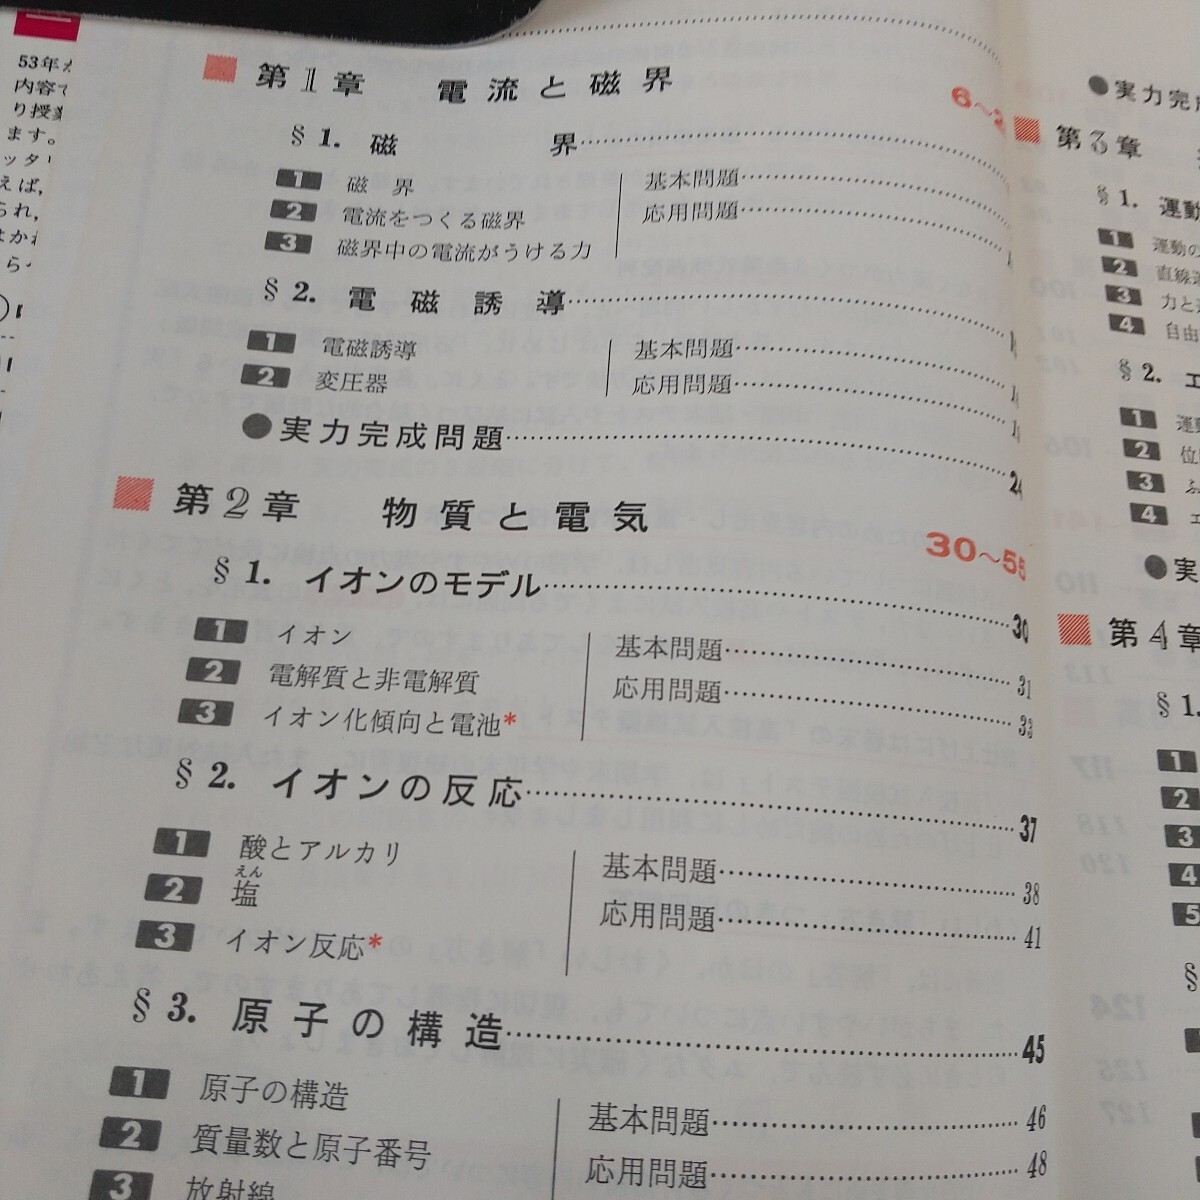 第1章 電流と磁界
§1. 磁界
1 磁界
2 電流をつくる磁界
3 磁界中の電流がうける力
基本問題
応用問題
§2. 電磁誘導
1 電磁誘導
2 変圧器
基本問題
応用問題
●実力完成問題 24
第2章 物質と電気 30〜55
§1. イオンのモデル 30
1 イオン
2 電解質と非電解質
3 イオン化傾向と電池*
基本問題 31
応用問題 33
§2. イオンの反応 37
1 酸とアルカリ
えん
2 塩
3 イオン反応*
基本問題 38
応用問題 41
§3. 原子の構造 45
1 原子の構造
2 質量数と原子番号
3 放射線
基本問題 46
応用問題 48
●実力完成
第3章
§1. 運動
1 運動の
2 直線運
3 力と
4 自由
§2. エ
1 運動
2 位
3
4
●実
第4章
§1.
1
2
3
4
5
53年
内容で
り授業
ます。
ッタリ
えば、
られ、